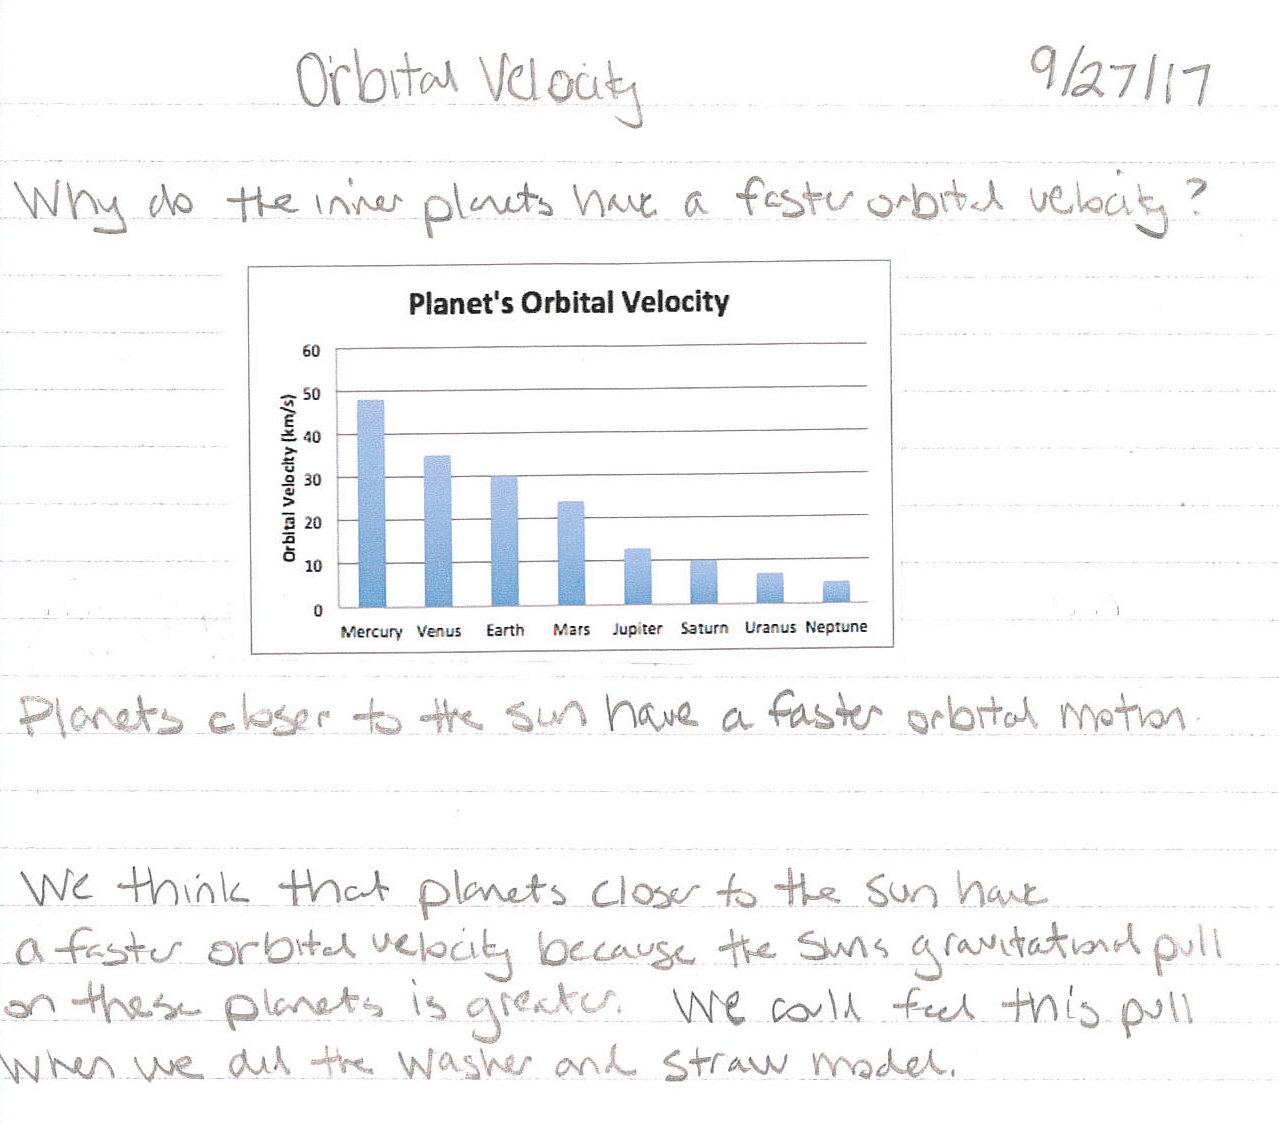 Orbital Velocity 9/27/17
Why do the inner planets have a faster orbital velocity?
Planet's Orbital Velocity
Orbital Velocity (km/s)
60
50
40
30
20
10
0
Mercury Venus Earth Mars Jupiter Saturn Uranus Neptune
Planets closer to the sun have a faster orbital motion.
We think that planets closer to the sun have
a faster orbital velocity because the suns gravitational pull
on these planets is greater. We could feel this pull
when we did the washer and straw model.